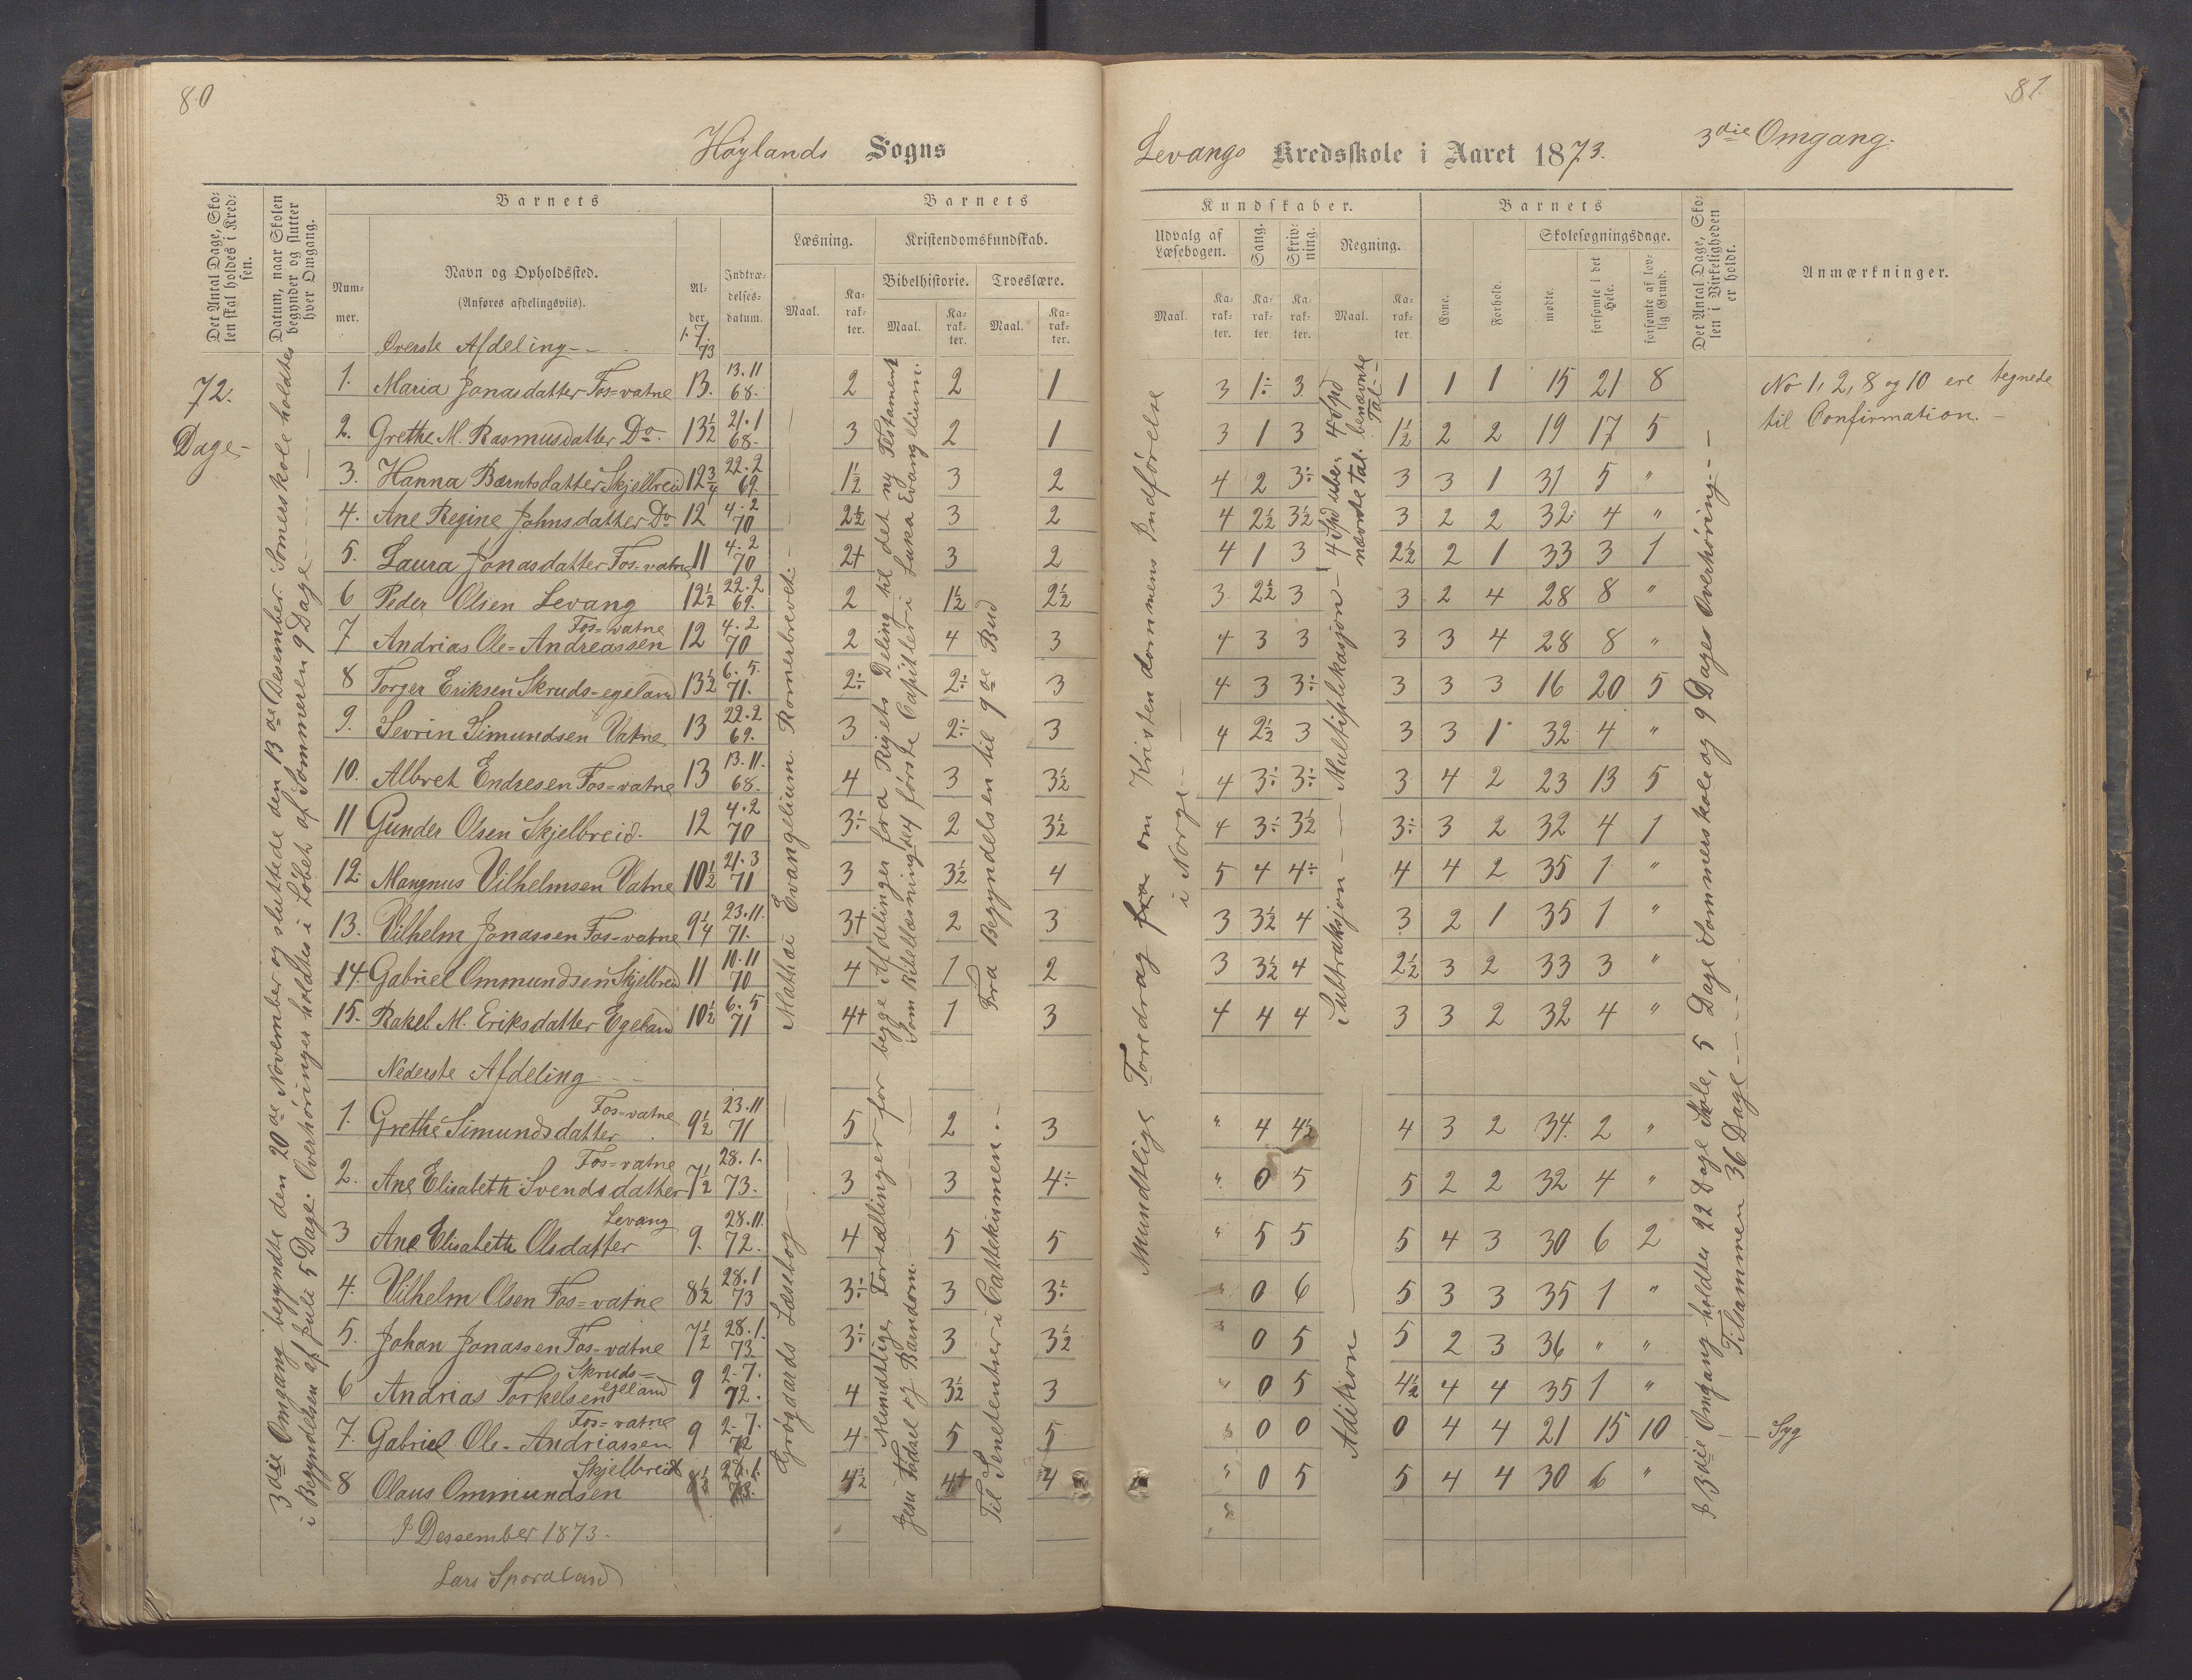 80
Höylands Sogns
Det Antal Dage, Sko-
len skal holdes i Kred-
sen.
Datum, naar Skolen
begynder og slutter
hver Omgang.
Barnets
Num-
mer.
Navn og Opholdssted.
(Anføres afdelingsviis).
Al-
der
Indtræ-
delses-
datum.
Barnets
Læsning.
Maal.
Ka-
rak-
ter.
Kristendomskundskab.
Bibelhistorie.
Maal.
Ka-
rak-
ter.
Troeslære.
Maal.
Ka-
rak-
ter.
72.
Dage-
3die Omgang begyndte den 20de November og sluttede den 13de Desember. Somerskole holdtes
i Begyndelsen af Juli 5 Dage. Overhøringer holdtes i Løbet af Sommeren 9 Dage
Overste Afdeling-- 1.7/73
1. Maria Jonasdatter Fos=vatne 13. 13.11 68. 2 2 1
2. Grethe M. Rasmusdatter Do. 13½ 21.1 68- 3 2 1
3. Hanna Bærntsdatter Skjelbreid 12¾ 22.2 69. 1½ 3 2
4. Ane Regine Johnsdatter Do 12 4.2 70 2½ 3 2
5. Laura Jonasdatter Fos=vatne 11 4.2 70 2+ 3 2
6 Peder Olsen Levang 12½ 22.2 69. 2 1½ 2½
7 Andrias Ole=Andreassen Fos=vatne 12 4.2 70 2 4 3
8 Torger Eriksen Skruds=egeland 13½ 6.5. 71. 2÷ 2÷ 3
9. Sevrin Simundsen Vatne 13 22.2 69. 3 2÷ 3
10. Albret Endresen Fos=vatne 13 13.11. 68- 4 3 3½
11 Gunder Olsen Skjelbreid. 12 4.2 70 3÷ 2 3½
12. Mangnus Vilhelmsen Vatne 10½ 21.3 71 3 3½ 4
13. Vilhelm Jonassen Fos=vatne 9¼ 23.11. 71. 3+ 2 3
14. Gabriel Ommundsen Skjelbreid 11 10.11 70 4 1 2
15. Rakel M. Eriksdatter Egeland 10½ 6.5 71 4+ 1 3
Nederste Afdeling--
1. Grethe Simundsdatter Fos=vatne 9½ 23.11 71 5 2 3
2. Ane Elisabeth Svendsdatter Fos=vatne 7½ 28.1. 73. 3 3 4÷
3 Ane Elisabeth Olsdatter Levang 9. 28.11. 72. 4 5 5
4. Vilhelm Olsen Fos=vatne 8½ 28.1 73 3÷ 3 3÷
5. Johan Jonassen Fos=vatne 7½ 28.1. 73 3÷ 3 3½
6 Andrias Torkelsen Skruds=egeland 9 2.7. 72. 4 3½ 3
7. Gabriel Ole=Andriassen Fos=vatne 9 2.7. 72 4 5 5
8 Olaus Ommundsen Skjelbreid 8½ 28.1. 73. 4½ 4+ 4
Mathæi Evangelium. Romerbrevet.-
Grøgaards Læsebog
begge Afdelinger fra Rigets Deling til det ny Testament
Som Bibellæsning de 4 første Capitler i Luka Evangelium.
Mundtlige Fortællinger for
Jesu Fødsel og Barndom.
Fra Begyndelsen til 9de Bud
Til Sententser i Cattekismen.-
I Dessember 1873.
Lars Sporaland
81.
Levangs Kredsskole i Aaret 1873. 3die Omgang.
Kundskaber.
Udvalg af
Læsebogen.
Maal.
Ka-
rak-
ter.
Sang.
Ka-
rak-
ter.
Skriv-
ning.
Ka-
rak-
ter.
Regning.
Maal.
Ka-
rak-
ter.
Barnets
Evne.
Forhold.
Skolesøgningsdage.
mødte.
forsømte i det
Hele.
forsømte af lov-
lig Grund.
Det Antal Dage, Sko-
len i Virkeligheden
er holdt.
Anmærkninger.
3 1÷ 3 1 1 1 15 21 8
3 1 3 1½ 2 2 19 17 5
4 2 3÷ 3 3 1 31 5 "
4 2½ 3½ 3 2 2 32 4 "
4 1 3 2½ 2 1 33 3 1
3 2½ 3 3 2 4 28 8 "
4 3 3 3 3 4 28 8 "
4 3 3÷ 3 3 3 16 20 5
4 2½ 3 3 3 1 32 4 "
4 3÷ 3÷ 3 4 2 23 13 5
4 3÷ 3½ 3÷ 3 2 32 4 1
5 4 4÷ 4 4 2 35 1 "
3 3½ 4 3 2 1 35 1 "
3 3½ 4 2½ 3 2 33 3 "
4 4 4 3 3 2 32 4 "
" 4 4½ 4 3 2 34. 2 "
" 0 5 5 2 2 32 4 "
" 5 5 5 4 3 30 6 2
" 0 6 5 3 3 35 1 "
" 0 5 5 2 3 36 " "
" 0 5 4½ 4 4 35 1 "
" 0 0 0 4 4 21 15 10
" 0 5 5 4 4 30 6 "
Mundtlige Foredrag fra om Kristendommens Indførelse
i Norge
Subtraksjon - Multiplikasjon - 4 Spd ube- 4 Spd
nævnte tal. benævnte
Tal.-
Adition
I 3die Omgang holdtes 22 Dage Skole, 5 Dage Sommerskole og 9 Dages Overhøring.--
Tilsammen 36 Dage--
No 1, 2, 8 og 10 ere tegnede
til Confirmation.-
- Syg